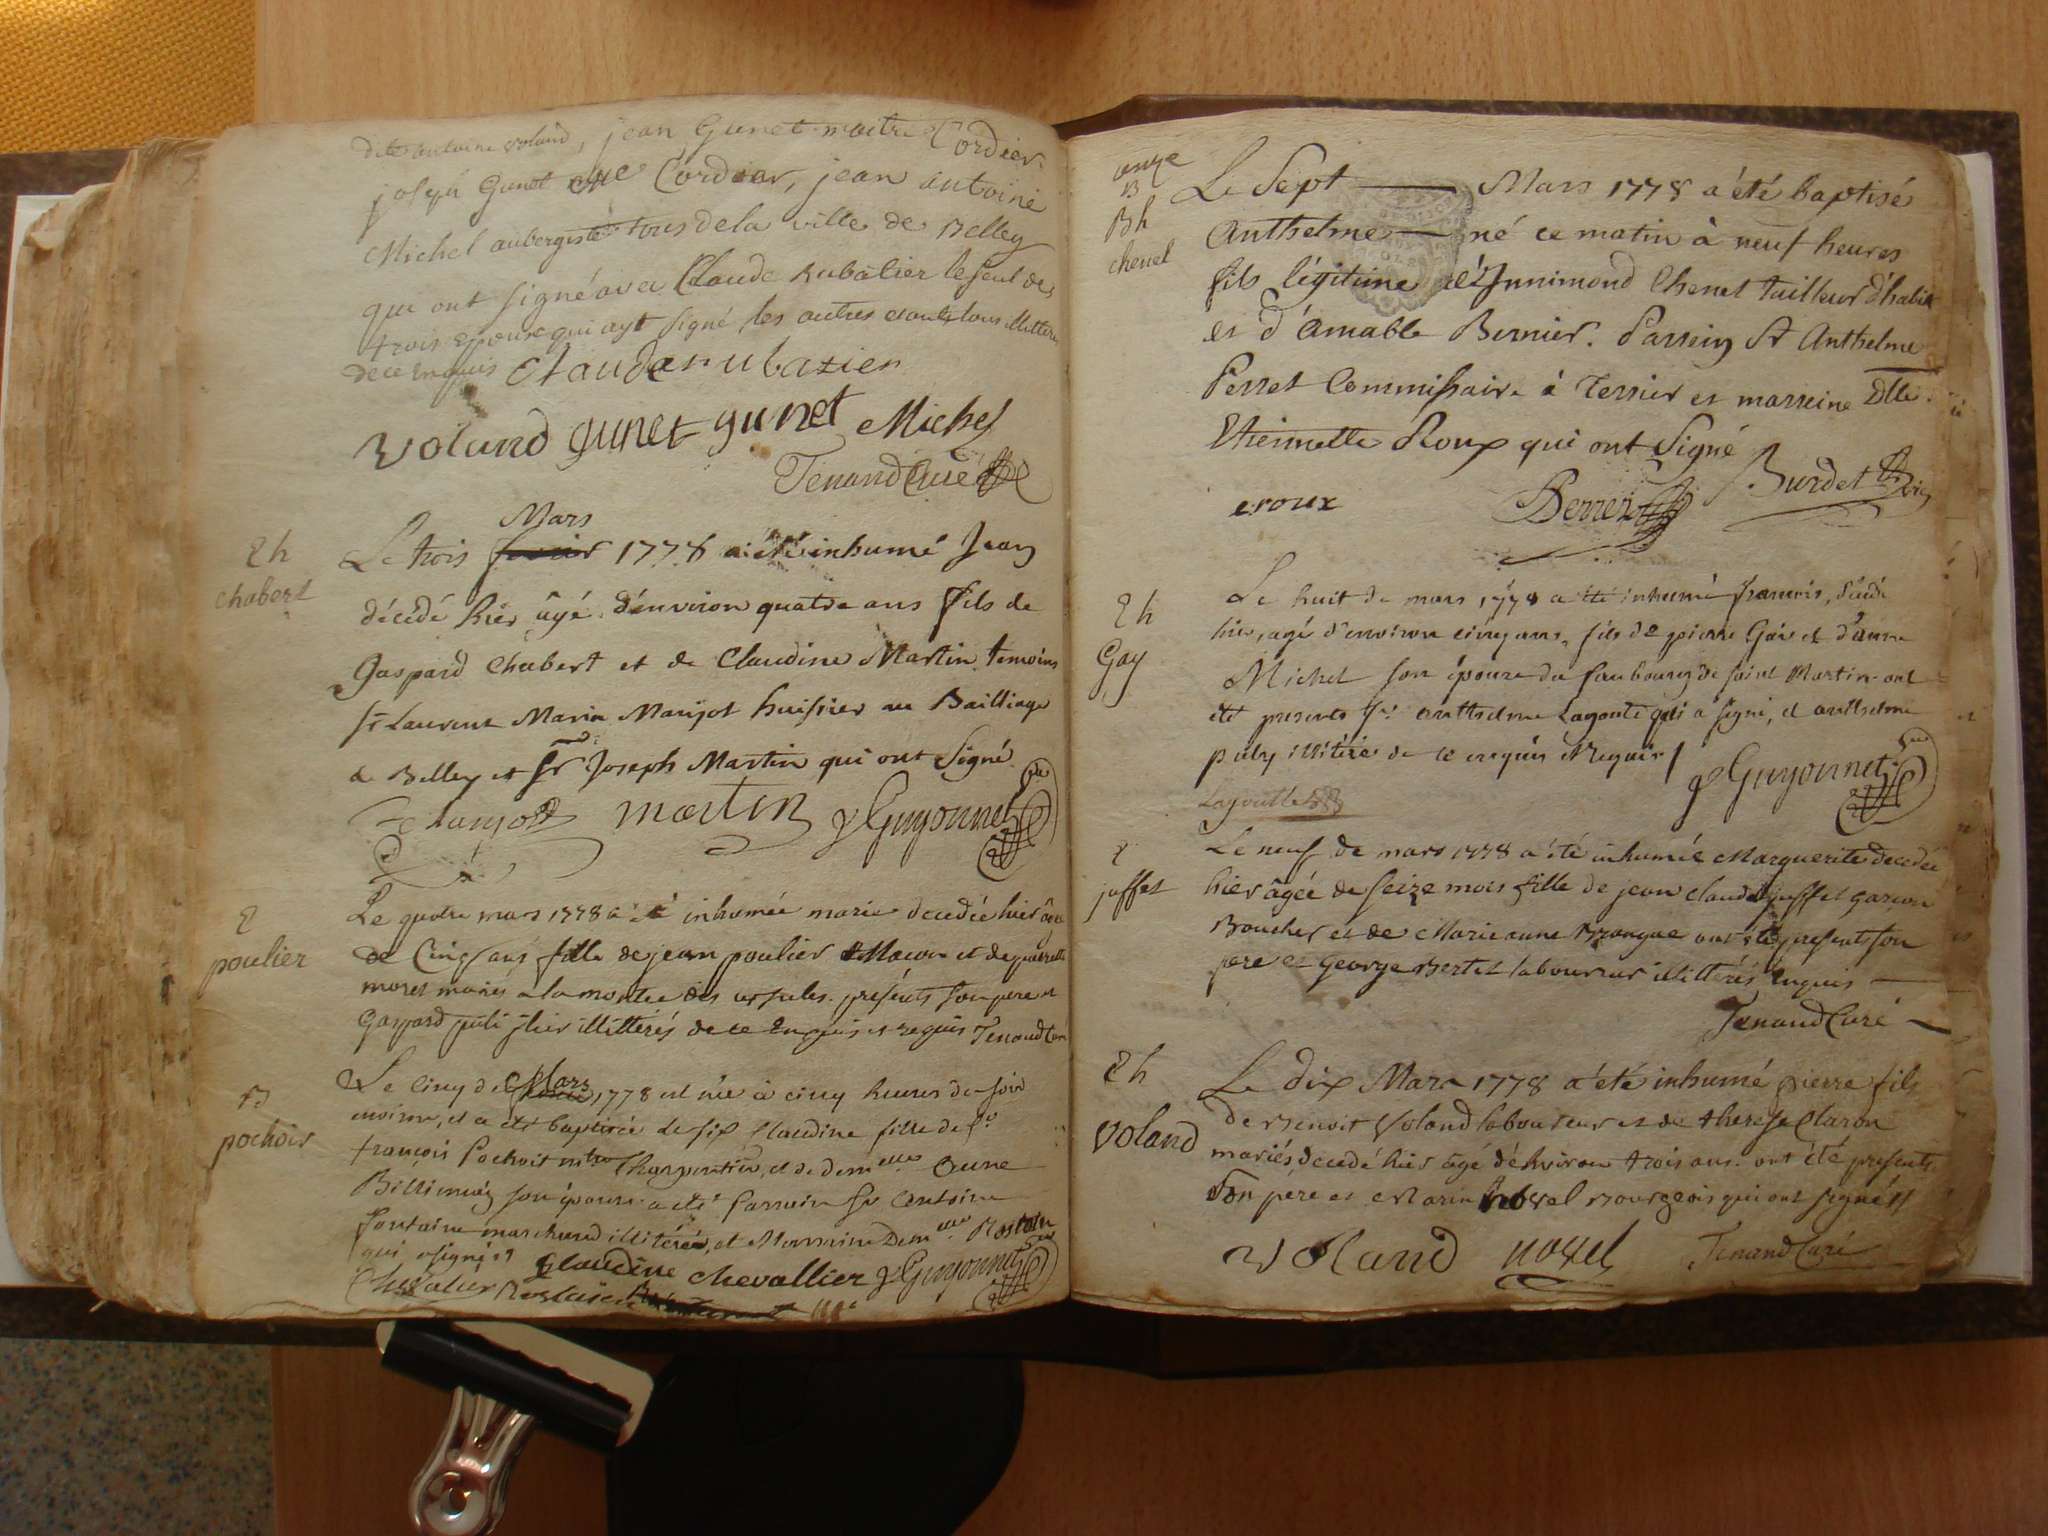 dite antoine voland, jean Gunet maitre Cordier
joseph Gunet Cordier, jean antoine
Michel aubergiste tous de la ville de Belley
qui ont signé avec Claude Rubatier le seul des
trois epoux qui ayt signé les autres etants tous illitterés
de ce enquis Claude rubatier
Voland gunet gunet Michel
Tenand Curé
Mars
Eh Le trois 1778 a été inhumé Jean
chabert décédé hier âgé d'environ quatre ans fils de
Gaspard Chabert et de Claudine Martin temoins
sr Laurent Marin Marijot huissier au Bailliage
de Belley et sr Joseph Martin qui ont Signé
martin Guyonnet
E Le quatre mars 1778 a été inhumée marie decedée hier
poulier de Cinq ans fille de jean poulier Macon et de
moret mariés a la montée des ursules. présents son pere et
Gaspard illittérés de ce Enquis et requis Tenand
B Le cinq de Mars 1778 est née à cinq heures du soir
environ, et a été baptisée le six Claudine fille de sr
pochoit françois Pochoit mtre Charpentier, et de demelle Anne
son épouse a été Parrain sr Antoine
fontaine marchand illitéré, et Marraine Demelle
qui a signé Claudine chevallier Guyonnet
Chevalier
onze
B Le Sept Mars 1778 a été baptisé
Bh Anthelme né ce matin à neuf heures
chenel fils légitime d'Ennimond Chenel tailleur d'habit
et d'Amable Bernier. Parrein Sr Anthelme
Perret Commissaire à Terrier et marreine Dlle
Etiennette Roux qui ont Signé
eroux Perret Burdet
Eh Le huit de mars 1778 a été inhumé françois, décédé
hier, agé d'environ cinq ans, fils de pierre Gai et d'anne
Gay Michel son épouse du faubourg de saint Martin ont
été presents sr anthelme Lagoutte qui a signé, et anthelme
illitéré de ce enquis et requis Guyonnet
Lagoutte
E Le neuf de mars 1778 a été inhumée Marguerite decedée
juffet hier âgée de seize mois fille de jean claude juffet garçon
Boucher et de Marie anne ont été presents son
pere et George Bertet laboureur illittérés Enquis
Tenand Curé
Eh Le dix Mars 1778 a été inhumé pierre fils
Voland de Benoit Voland laboureur et de therese Claron
mariés, decedé hier âgé d'environ trois ans. ont été presents
Son pere et Marin noxel Bourgeois qui ont signé
Voland noxel Tenand Curé